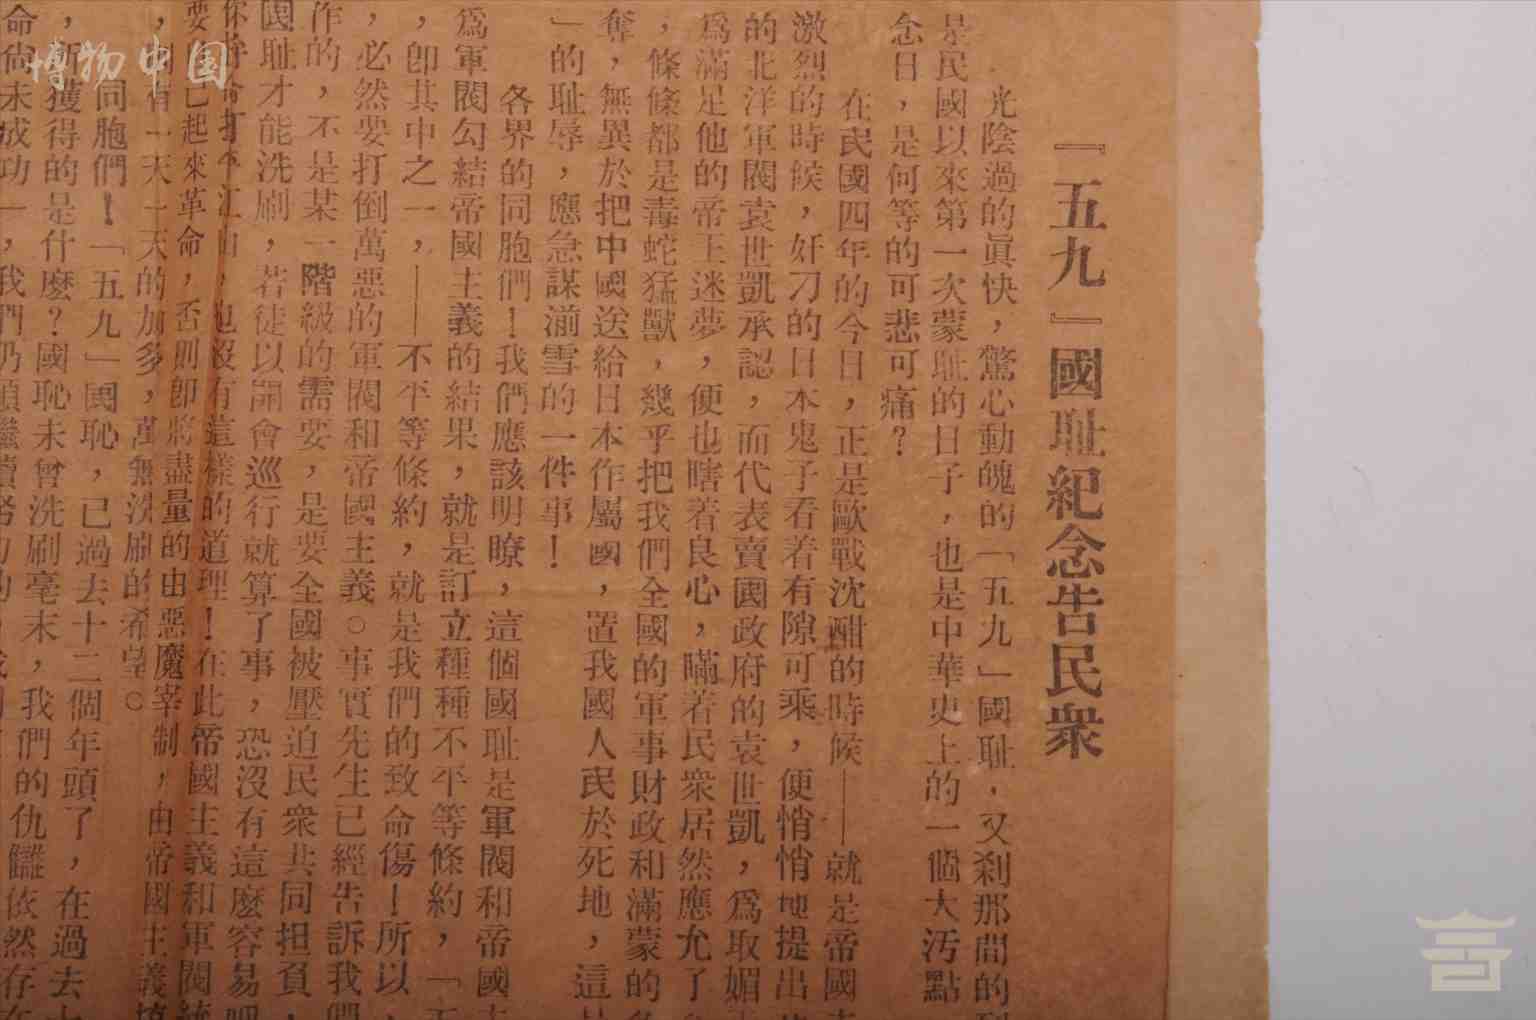 『五九』國恥紀念告民衆
光陰過的眞快，驚心動魄的「五九」國恥，又刹那間的到
是民國以來第一次蒙恥的日子，也是中華史上的一個大汚點
念日，是何等的可悲可痛？
在民國四年的今日，正是歐戰沈酣的時候——就是帝國主
激烈的時候，奸刁的日本鬼子看着有隙可乘，便悄悄地提出
的北洋軍閥袁世凱承認，而代表賣國政府的袁世凱，爲取媚
爲滿足他的帝王迷夢，便也瞎着良心，瞞着民衆居然應允了
，條條都是毒蛇猛獸，幾乎把我們全國的軍事財政和滿蒙的
奪，無異於把中國送給日本作屬國，置我國人民於死地，這是
」的恥辱，應急謀湔雪的一件事！
各界的同胞們！我們應該明瞭，這個國恥是軍閥和帝國主
爲軍閥勾結帝國主義的結果，就是訂立種種不平等條約，「五
，卽其中之一，——不平等條約，就是我們的致命傷！所以，
，必然要打倒萬惡的軍閥和帝國主義。事實先生已經告訴我們
作的，不是某一階級的需要，是要全國被壓迫民衆共同担負，
國恥才能洗刷，若徒以開會巡行就算了事，恐沒有這麼容易吧
江山，也沒有這樣的道理！在此帝國主義和軍閥統
要 己起來革命，否則卽將盡量的由惡魔宰制，由帝國主義
， 有一天一天的加多，萬無洗刷的希望。
同胞們！「五九」國恥，已過去十二個年頭了，在過去
，所獲得的是什麼？國恥未曾洗刷毫末，我們的仇讎依然存在
命尙未成功」，我們仍須繼續努力
博物中国